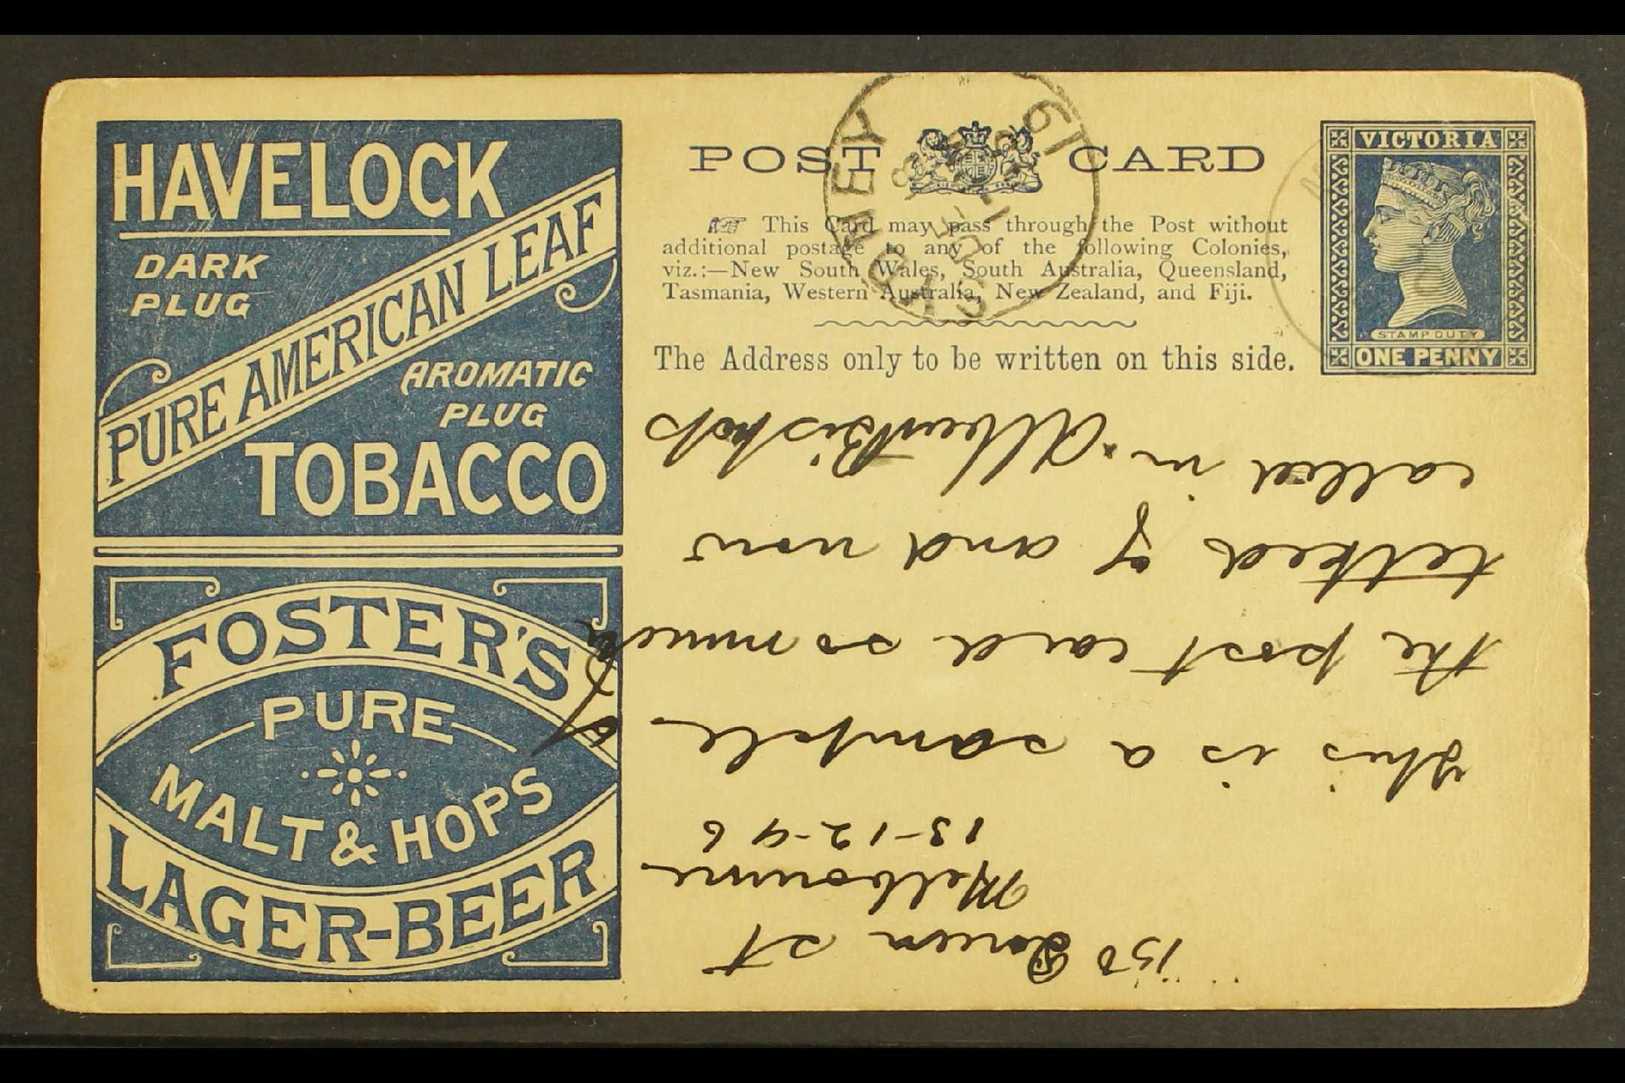 HAVELOCK
DARK
PLUG
PURE AMERICAN LEAF
AROMATIC
PLUG
TOBACCO
FOSTER'S
PURE
MALT & HOPS
LAGER-BEER
POST CARD
This Card may pass through the Post without
additional postage to any of the following Colonies,
viz.:—New South Wales, South Australia, Queensland,
Tasmania, Western Australia, New Zealand, and Fiji.
The Address only to be written on this side.
VICTORIA
STAMP DUTY
ONE PENNY
SYDNEY
150 Queen st
Melbourne
13-12-96
This is a sample of
the post card so much
talked of and now
called in. Albert Bishop